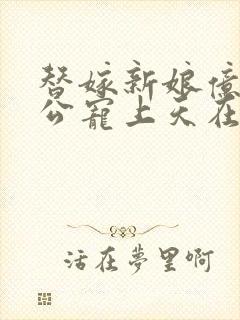 替嫁新娘億
公寵上天在
活在夢里啊